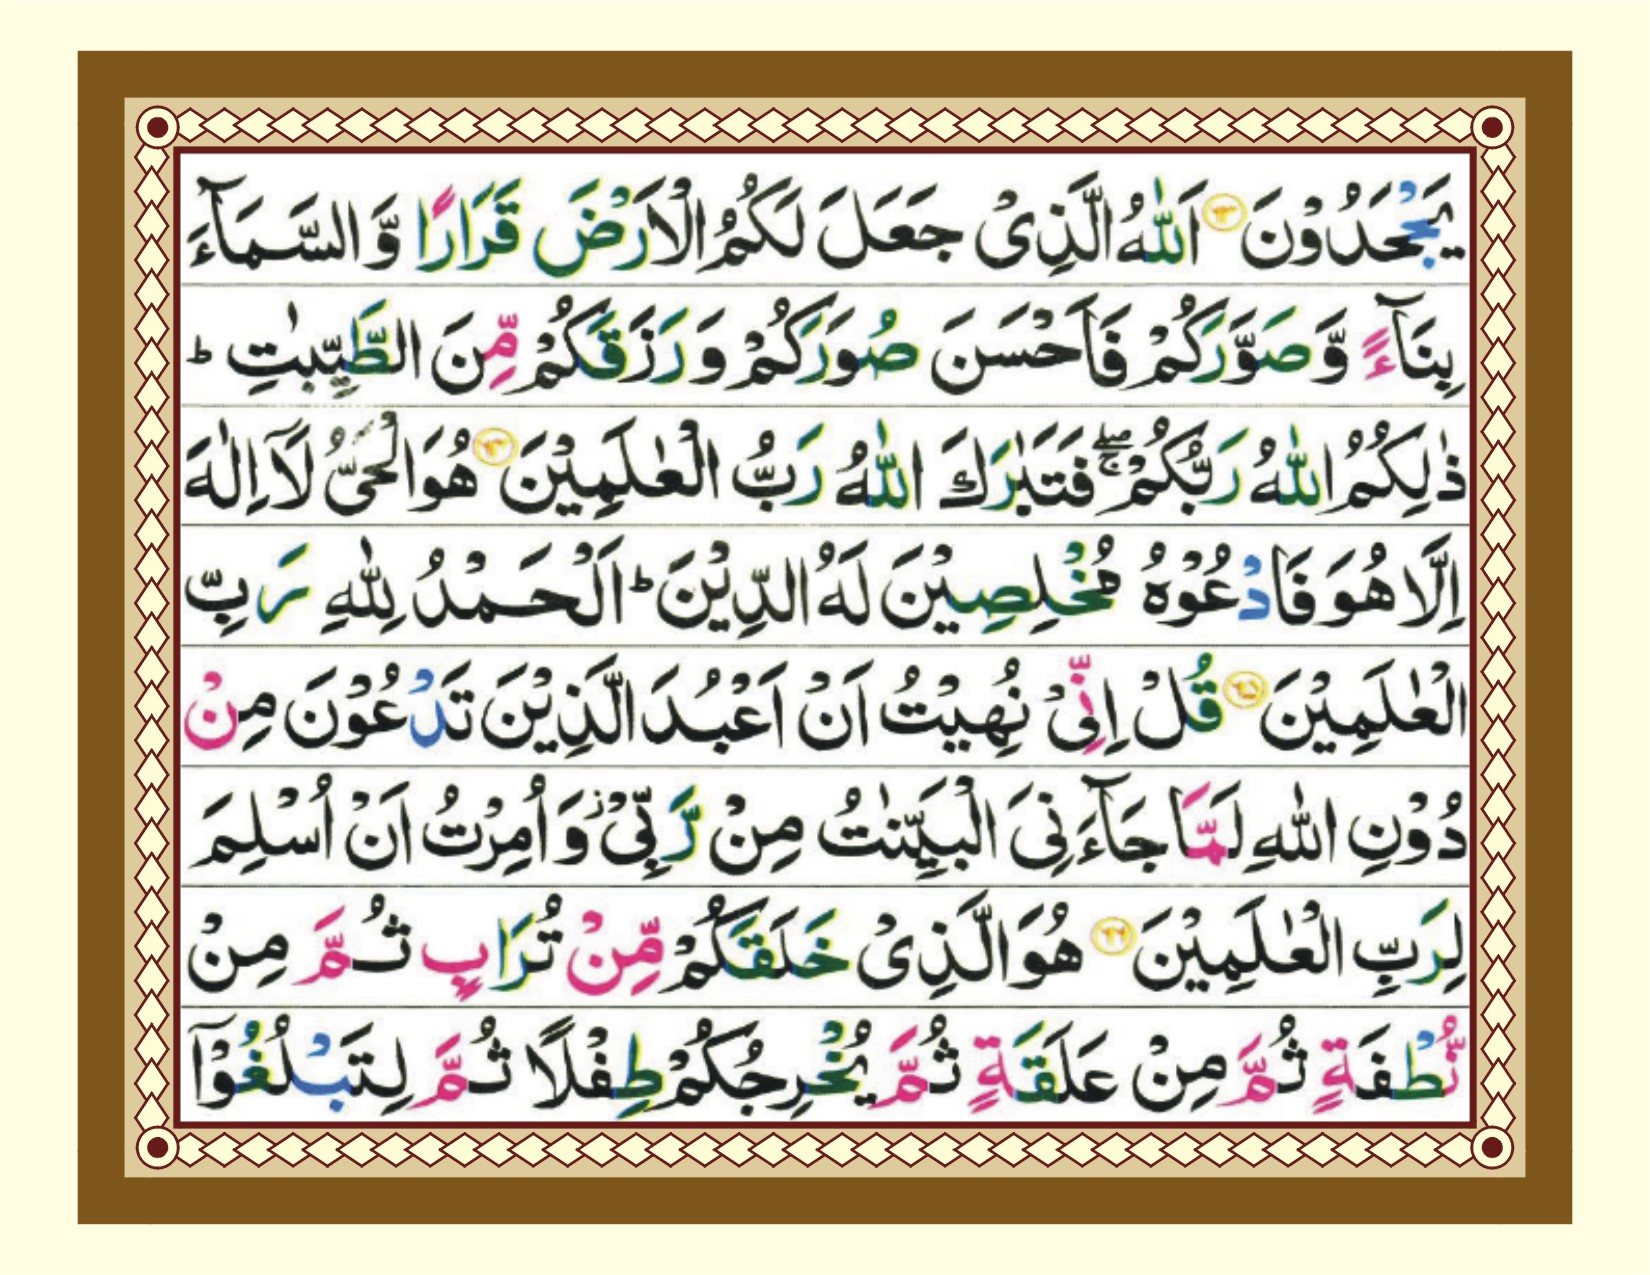 یَجْحَدُوْنَ ۝۶۳ اَللّٰهُ الَّذِیْ جَعَلَ لَكُمُ الْاَرْضَ قَرَارًا وَّ السَّمَآءَ
بِنَآءً وَّ صَوَّرَكُمْ فَاَحْسَنَ صُوَرَكُمْ وَ رَزَقَكُمْ مِّنَ الطَّیِّبٰتِ ؕ
ذٰلِكُمُ اللّٰهُ رَبُّكُمْ ۖۚ فَتَبٰرَكَ اللّٰهُ رَبُّ الْعٰلَمِیْنَ ۝۶۴ هُوَ الْحَیُّ لَاۤ اِلٰهَ
اِلَّا هُوَ فَادْعُوْهُ مُخْلِصِیْنَ لَهُ الدِّیْنَ ؕ اَلْحَمْدُ لِلّٰهِ رَبِّ
الْعٰلَمِیْنَ ۝۶۵ قُلْ اِنِّیْ نُهِیْتُ اَنْ اَعْبُدَ الَّذِیْنَ تَدْعُوْنَ مِنْ
دُوْنِ اللّٰهِ لَمَّا جَآءَنِیَ الْبَیِّنٰتُ مِنْ رَّبِّیْ ؗ وَ اُمِرْتُ اَنْ اُسْلِمَ
لِرَبِّ الْعٰلَمِیْنَ ۝۶۶ هُوَ الَّذِیْ خَلَقَكُمْ مِّنْ تُرَابٍ ثُمَّ مِنْ
نُّطْفَةٍ ثُمَّ مِنْ عَلَقَةٍ ثُمَّ یُخْرِجُكُمْ طِفْلًا ثُمَّ لِتَبْلُغُوْۤا